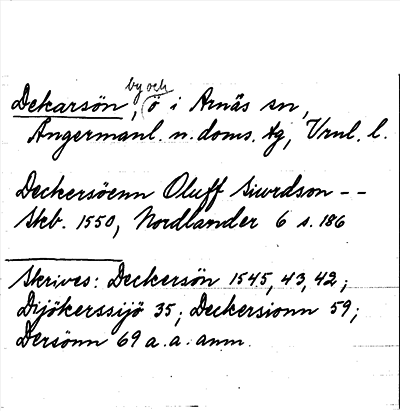 by och
Dekarsön, ö i Arnäs sn,
Ångermanl. n. doms. tg, Vrnl. l.
Deckersöenn Oluff Siurdson --
Skb. 1550, Nordlander 6 s. 186
Skrives: Deckersön 1545, 43, 42;
Dijökerssijö 35; Deckersionn 59;
Dersönn 69 a. a. anm.